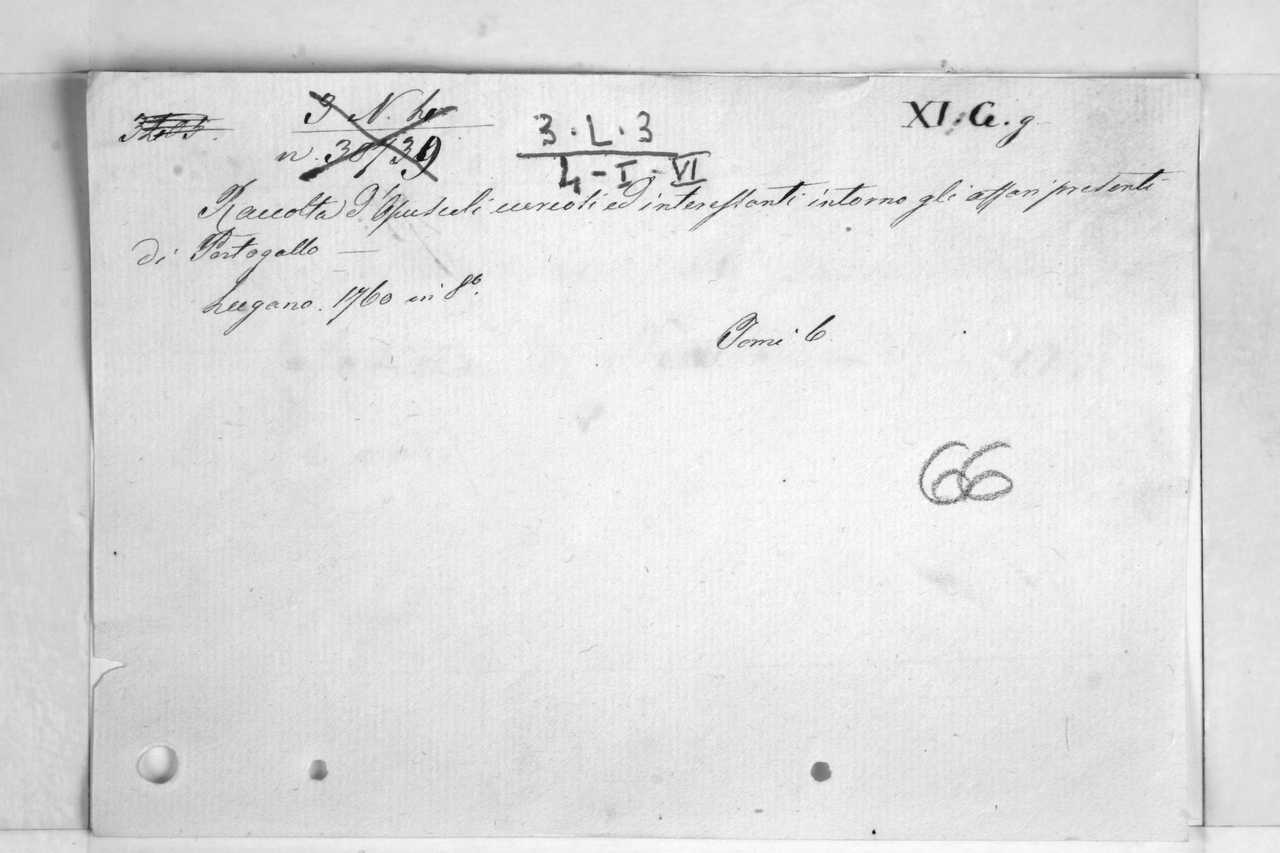 XI. G. g
3 . L . 3
4 - I - VI
Raccolta d'Opuscoli curiosi ed interessanti intorno gli affari presenti
di Portogallo —
Lugano. 1760 in 8º.
Tomi 6
66